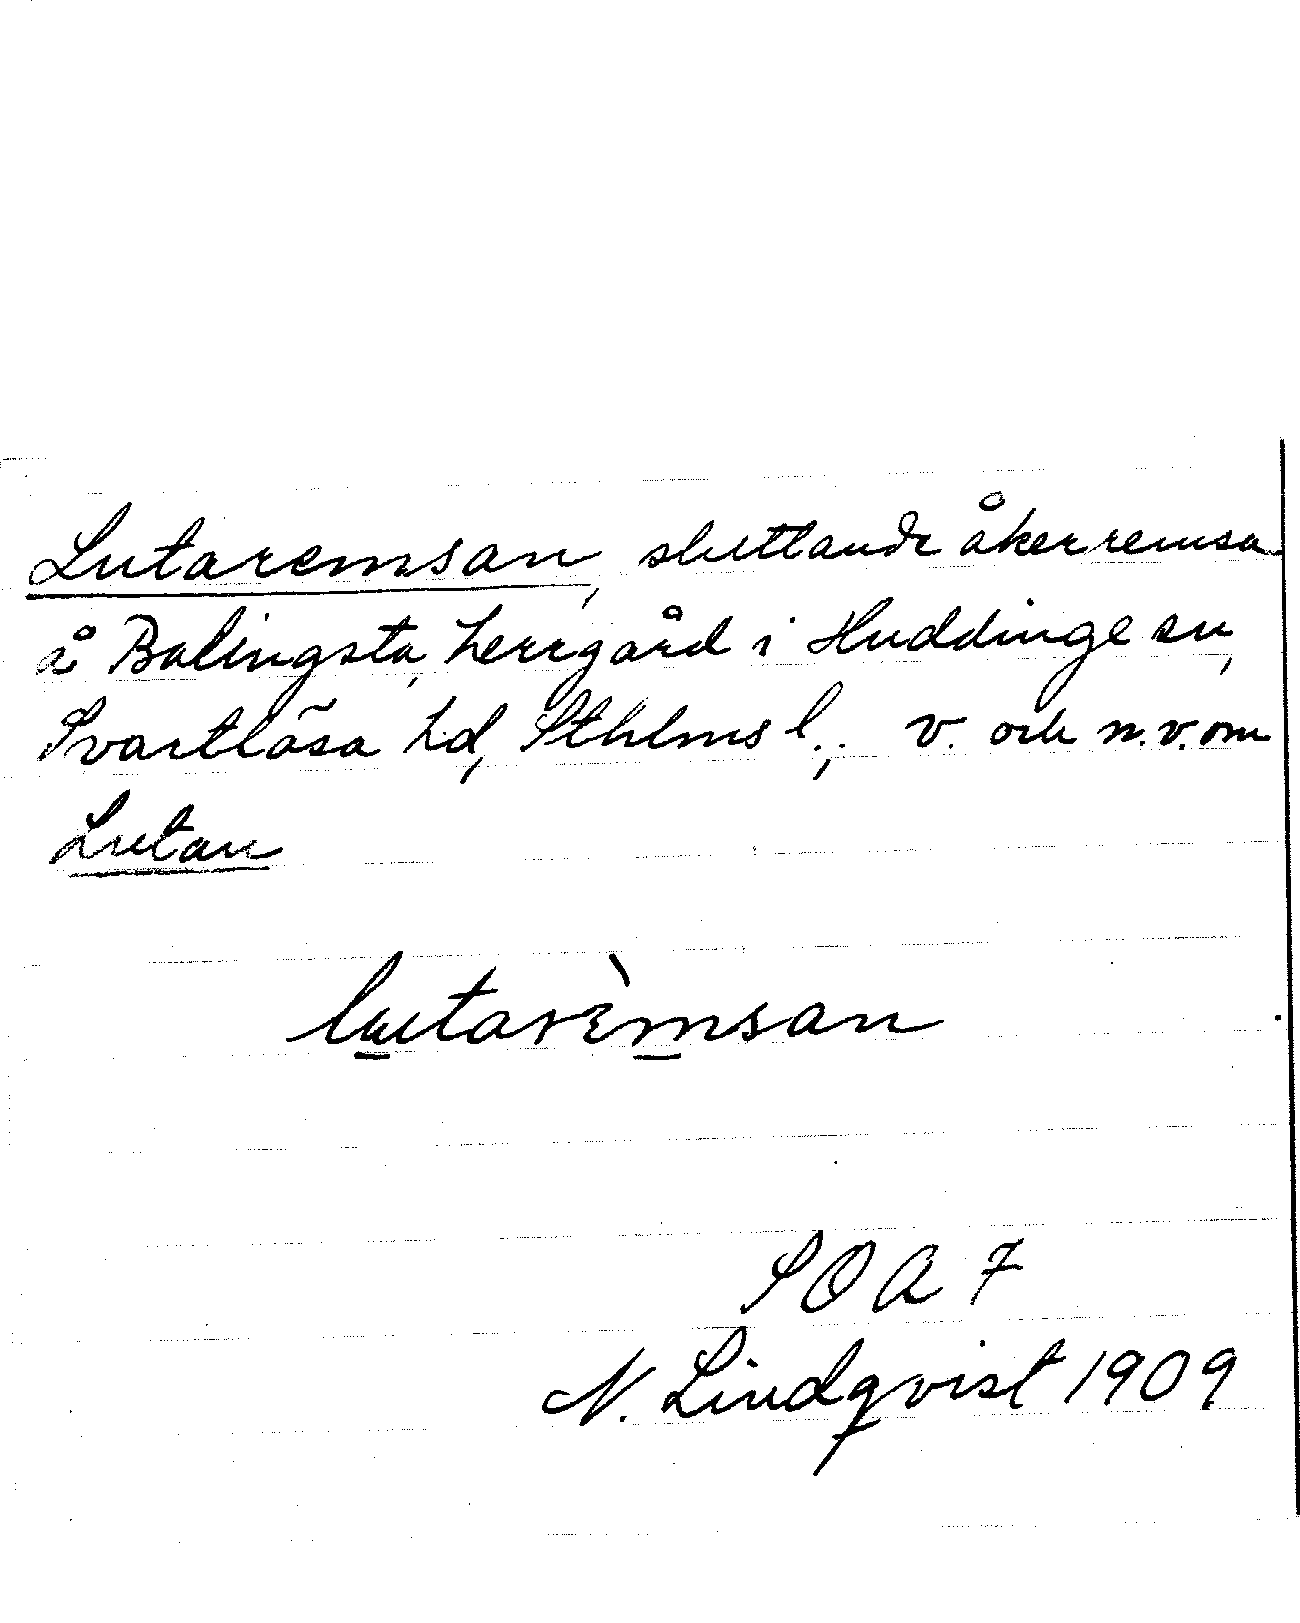 Lutaremsan, sluttande åkerremsa
å Balingsta, herrgård i Huddinge sn,
Svartlösa hd, Sthlms l.; v. och n.v. om
Lutan
lutarèmsan
SOA 7
N. Lindqvist 1909